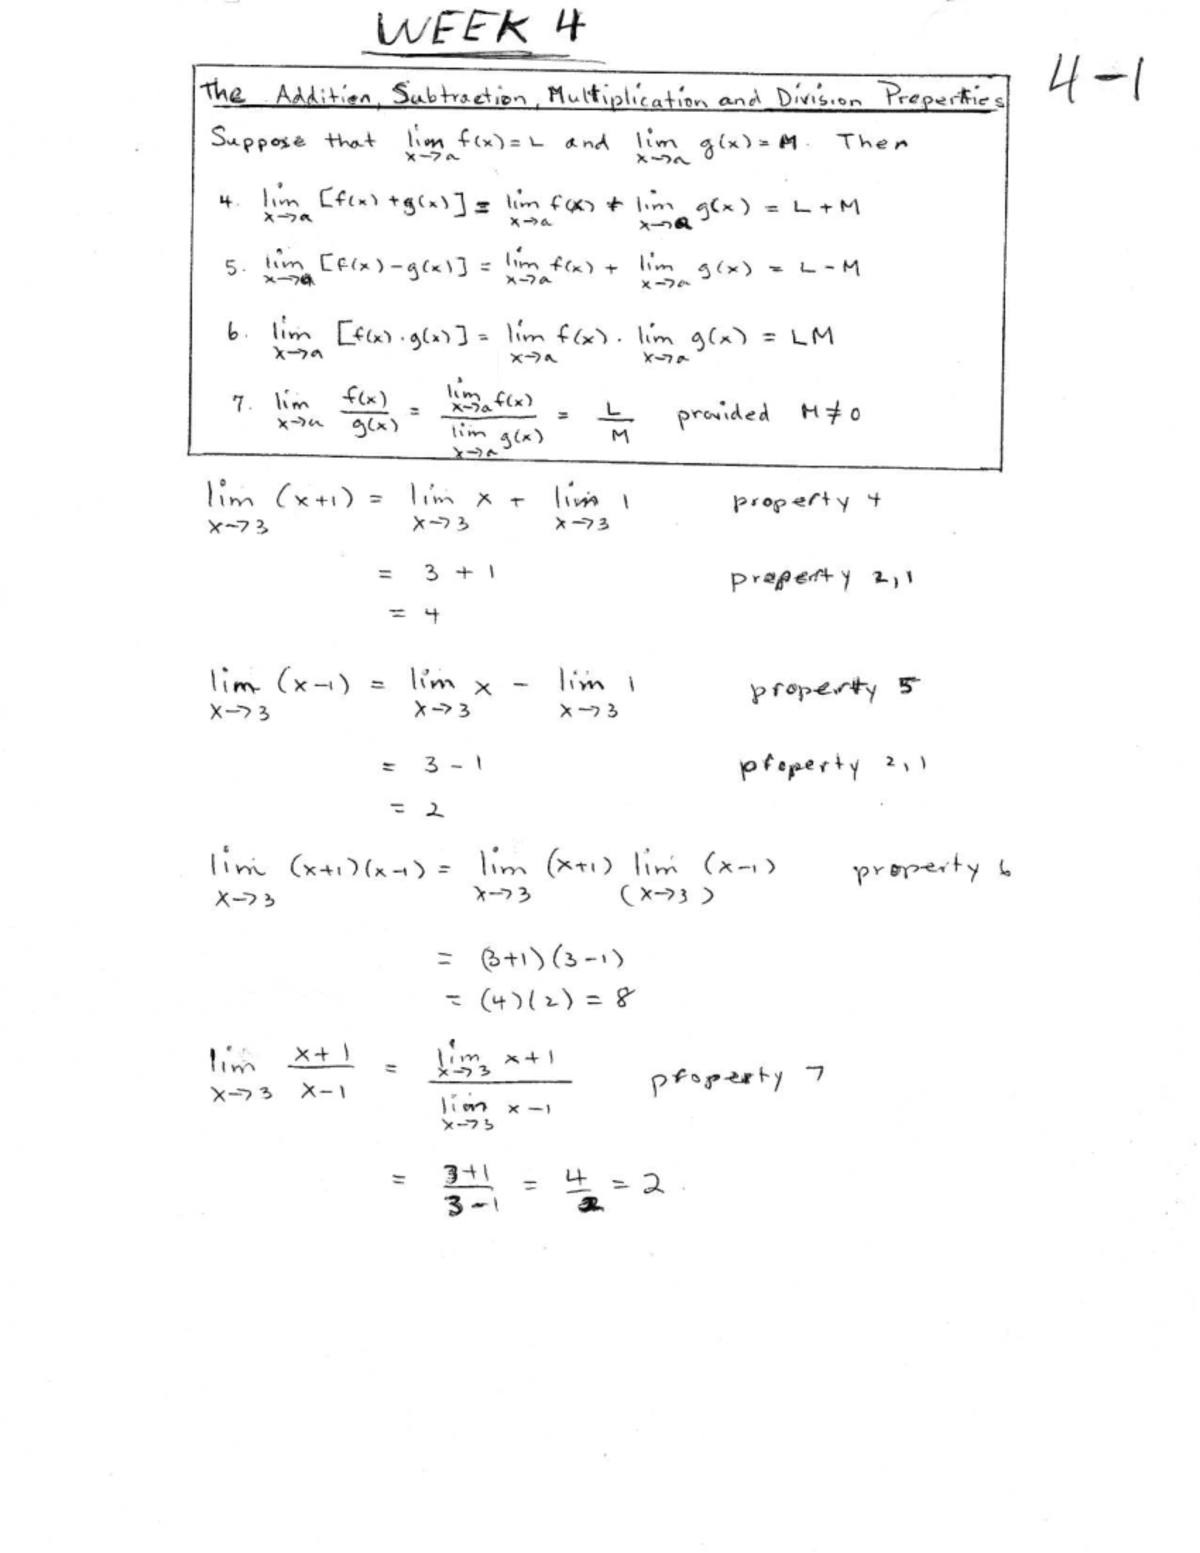 WEEK 4
4-1
The Addition, Subtraction, Multiplication and Division Properties
Suppose that lim x→a f(x) = L and lim x→a g(x) = M. Then
4. lim x→a [f(x) + g(x)] = lim x→a f(x) + lim x→a g(x) = L + M
5. lim x→a [f(x) - g(x)] = lim x→a f(x) + lim x→a g(x) = L - M
6. lim x→a [f(x) · g(x)] = lim x→a f(x) · lim x→a g(x) = LM
7. lim x→a f(x)/g(x) = lim x→a f(x) / lim x→a g(x) = L/M provided M ≠ 0
lim x→3 (x+1) = lim x→3 x + lim x→3 1 property 4
= 3 + 1 property 2,1
= 4
lim x→3 (x-1) = lim x→3 x - lim x→3 1 property 5
= 3 - 1 property 2,1
= 2
lim x→3 (x+1)(x-1) = lim x→3 (x+1) lim (x→3) (x-1) property 6
= (3+1)(3-1)
= (4)(2) = 8
lim x→3 x+1/x-1 = lim x→3 x+1 / lim x→3 x-1 property 7
= 3+1/3-1 = 4/2 = 2.